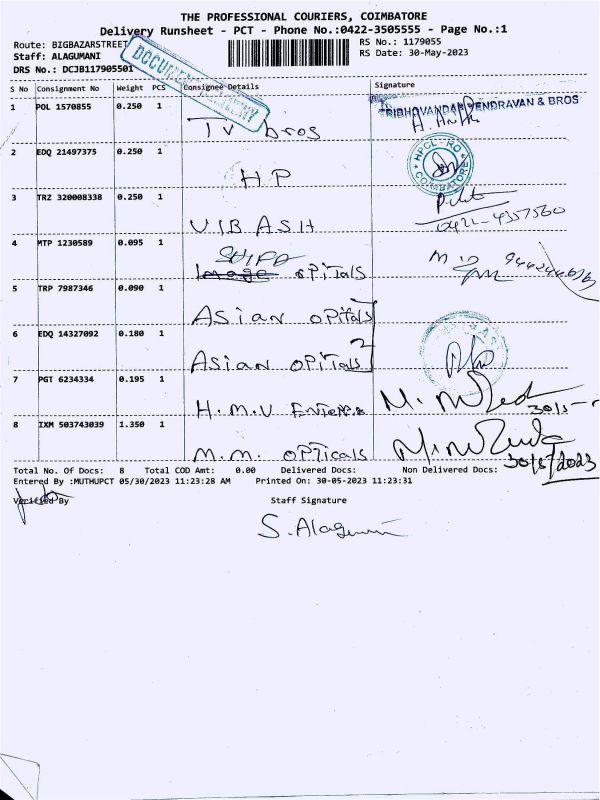 THE PROFESSIONAL COURIERS, COIMBATORE
Delivery Runsheet - PCT - Phone No.:0422-3505555 - Page No.:1
Route: BIGBAZARSTREET RS No.: 1179055
Staff: ALAGUMANI RS Date: 30-May-2023
DRS No.: DCJB117905501
DOCUMENT
S No Consignment No Weight PCS Consignee Details Signature
1 POL 1570855 0.250 1
TRIBHOVANDAS VENDRAVAN & BROS
TV bros
2 EDQ 21497375 0.250 1
HPCL-RO COIMBATORE
HP
3 TRZ 320008338 0.250 1
0422-4357560
VIBASH
4 MTP 1230589 0.095 1
OPITals
5 TRP 7987346 0.090 1
ASian OPITals
6 EDQ 14327092 0.180 1
2
ASian OPITals
7 PGT 6234334 0.195 1
H.M.V
8 IXM 503743039 1.350 1
M.M. OPTicals 30/5/2023
Total No. Of Docs: 8 Total COD Amt: 0.00 Delivered Docs: Non Delivered Docs:
Entered By :MUTHUPCT 05/30/2023 11:23:28 AM Printed On: 30-05-2023 11:23:31
Verified By Staff Signature
S. Alagumani